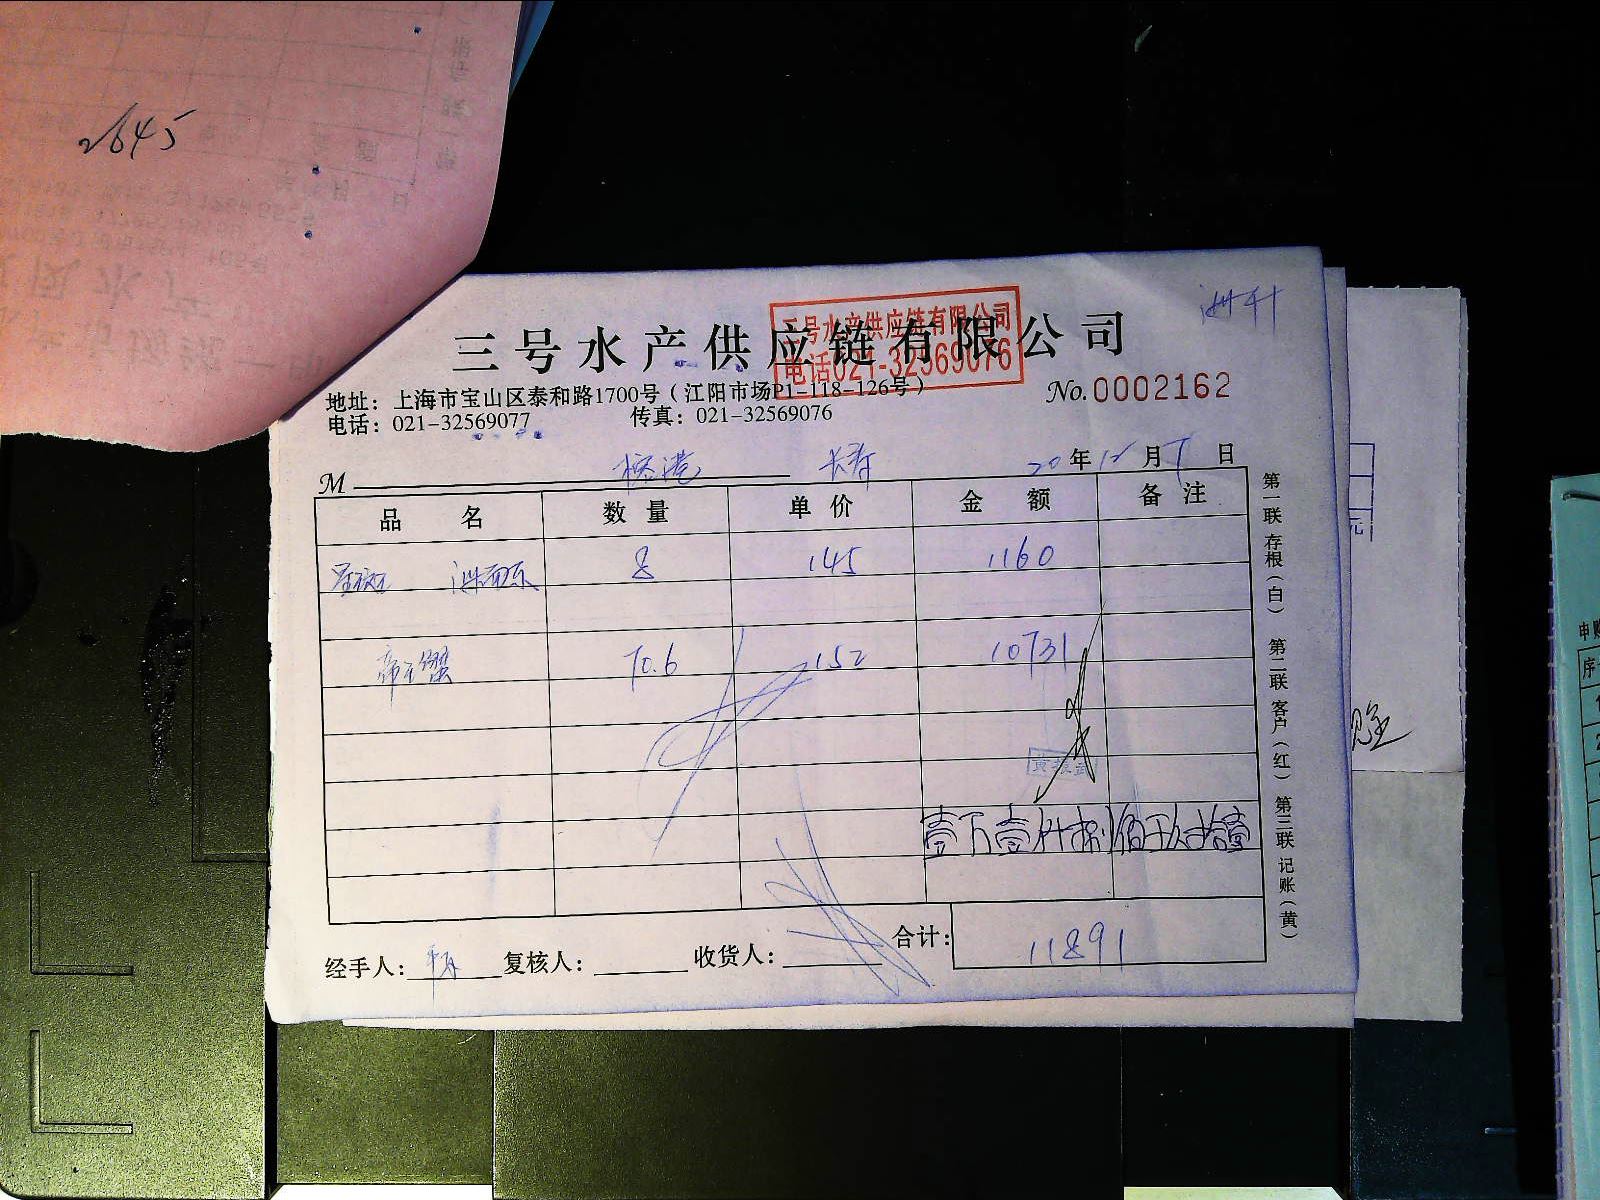 2645
三号水产供应链有限公司
三号水产供应链有限公司
电话021-32569076
地址：上海市宝山区泰和路1700号（江阳市场P1-118-126号）
No.0002162
电话：021-32569077 传真：021-32569076
M 长寿 20年12月 日
品 名 数 量 单 价 金 额 备 注
8 145 1160
帝王蟹 70.6 152 10731
壹万壹仟捌佰玖拾壹
经手人： 复核人： 收货人： 合计： 11891
第一联 存根（白） 第二联 客户（红） 第三联 记账（黄）
元
申购
序